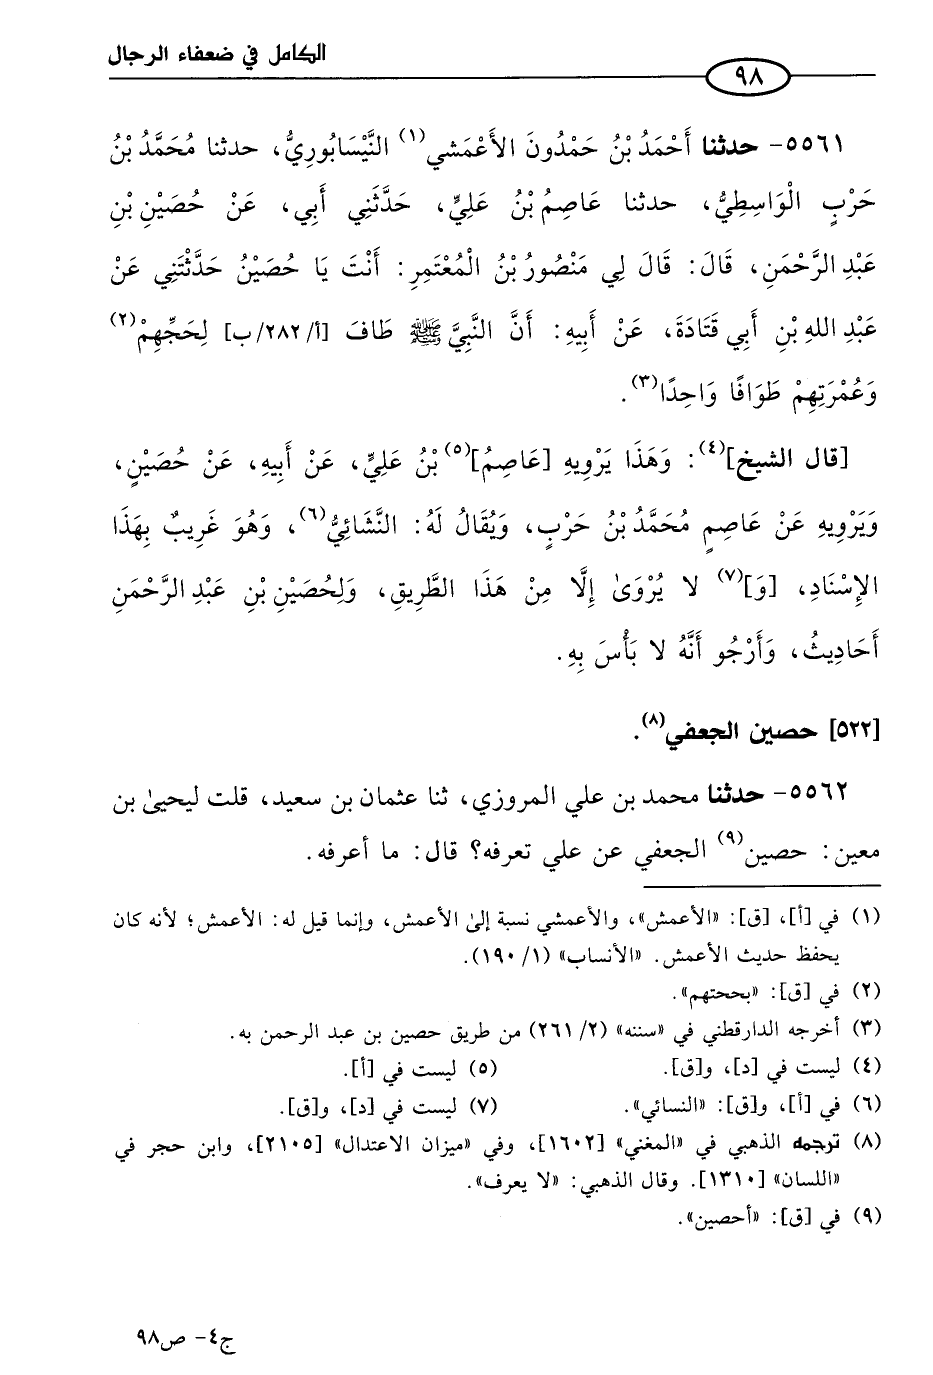 الكامل في ضعفاء الرجال
٩٨
٥٥٦١- حدثنا أَحْمَدُ بْنُ حَمْدُونَ الأَعْمَشي(١) النَّيْسَابُورِيُّ، حدثنا مُحَمَّدُ بْنُ
حَرْبٍ الْوَاسِطِيُّ، حدثنا عَاصِمُ بْنُ عَلِيٍّ، حَدَّثَنِي أَبِي، عَنْ حُصَيْنِ بْنِ
عَبْدِ الرَّحْمَنِ، قَالَ: قَالَ لِي مَنْصُورُ بْنُ الْمُعْتَمِرِ: أَنْتَ يَا حُصَيْنُ حَدَّثْتَنِي عَنْ
عَبْدِ اللهِ بْنِ أَبِي قَتَادَةَ، عَنْ أَبِيهِ: أَنَّ النَّبِيَّ ﷺ طَافَ [أ/٢٨٢/ب] لِحَجِّهِمْ(٢)
وَعُمْرَتِهِمْ طَوَافًا وَاحِدًا(٣).
[قال الشيخ](٤): وَهَذَا يَرْوِيهِ [عَاصِمُ](٥) بْنُ عَلِيٍّ، عَنْ أَبِيهِ، عَنْ حُصَيْنٍ،
وَيَرْوِيهِ عَنْ عَاصِمٍ مُحَمَّدُ بْنُ حَرْبٍ، وَيُقَالُ لَهُ: النَّشَائِيُّ(٦)، وَهُوَ غَرِيبٌ بِهَذَا
الإِسْنَادِ، [وَ](٧) لا يُرْوَىٰ إِلَّا مِنْ هَذَا الطَّرِيقِ، وَلِحُصَيْنِ بْنِ عَبْدِ الرَّحْمَنِ
أَحَادِيثُ، وَأَرْجُو أَنَّهُ لا بَأْسَ بِهِ.
[٥٢٢] حصين الجعفي(٨).
٥٥٦٢- حدثنا محمد بن علي المروزي، ثنا عثمان بن سعيد، قلت ليحيىٰ بن
معين: حصين(٩) الجعفي عن علي تعرفه؟ قال: ما أعرفه.
(١) في [أ]، [ق]: «الأعمش»، والأعمشي نسبة إلىٰ الأعمش، وإنما قيل له: الأعمش؛ لأنه كان
يحفظ حديث الأعمش. «الأنساب» (١/ ١٩٠).
(٢) في [ق]: «بححتهم».
(٣) أخرجه الدارقطني في «سننه» (٢/ ٢٦١) من طريق حصين بن عبد الرحمن به.
(٤) ليست في [د]، و[ق]. (٥) ليست في [أ].
(٦) في [أ]، و[ق]: «النسائي». (٧) ليست في [د]، و[ق].
(٨) ترجمه الذهبي في «المغني» [١٦٠٢]، وفي «ميزان الاعتدال» [٢١٠٥]، وابن حجر في
«اللسان» [١٣١٠]. وقال الذهبي: «لا يعرف».
(٩) في [ق]: «أحصين».
ج٤- ص٩٨